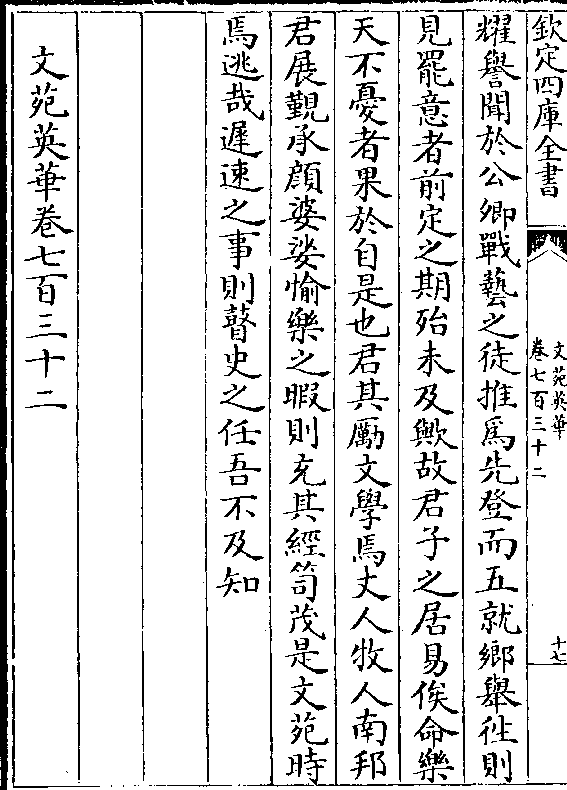 欽定四庫全書
文苑英華
卷七百三十二
十七
耀譽聞於公卿戰藝之徒推爲先登而五就鄉舉徃則
見罷意者前定之期殆未及歟故君子之居易俟命樂
天不憂者果於自是也君其勵文學焉丈人牧人南邦
君展覲承顔婆娑愉樂之暇則充其經笥茂是文苑時
焉逃哉遲速之事則瞽史之任吾不及知
文苑英華卷七百三十二